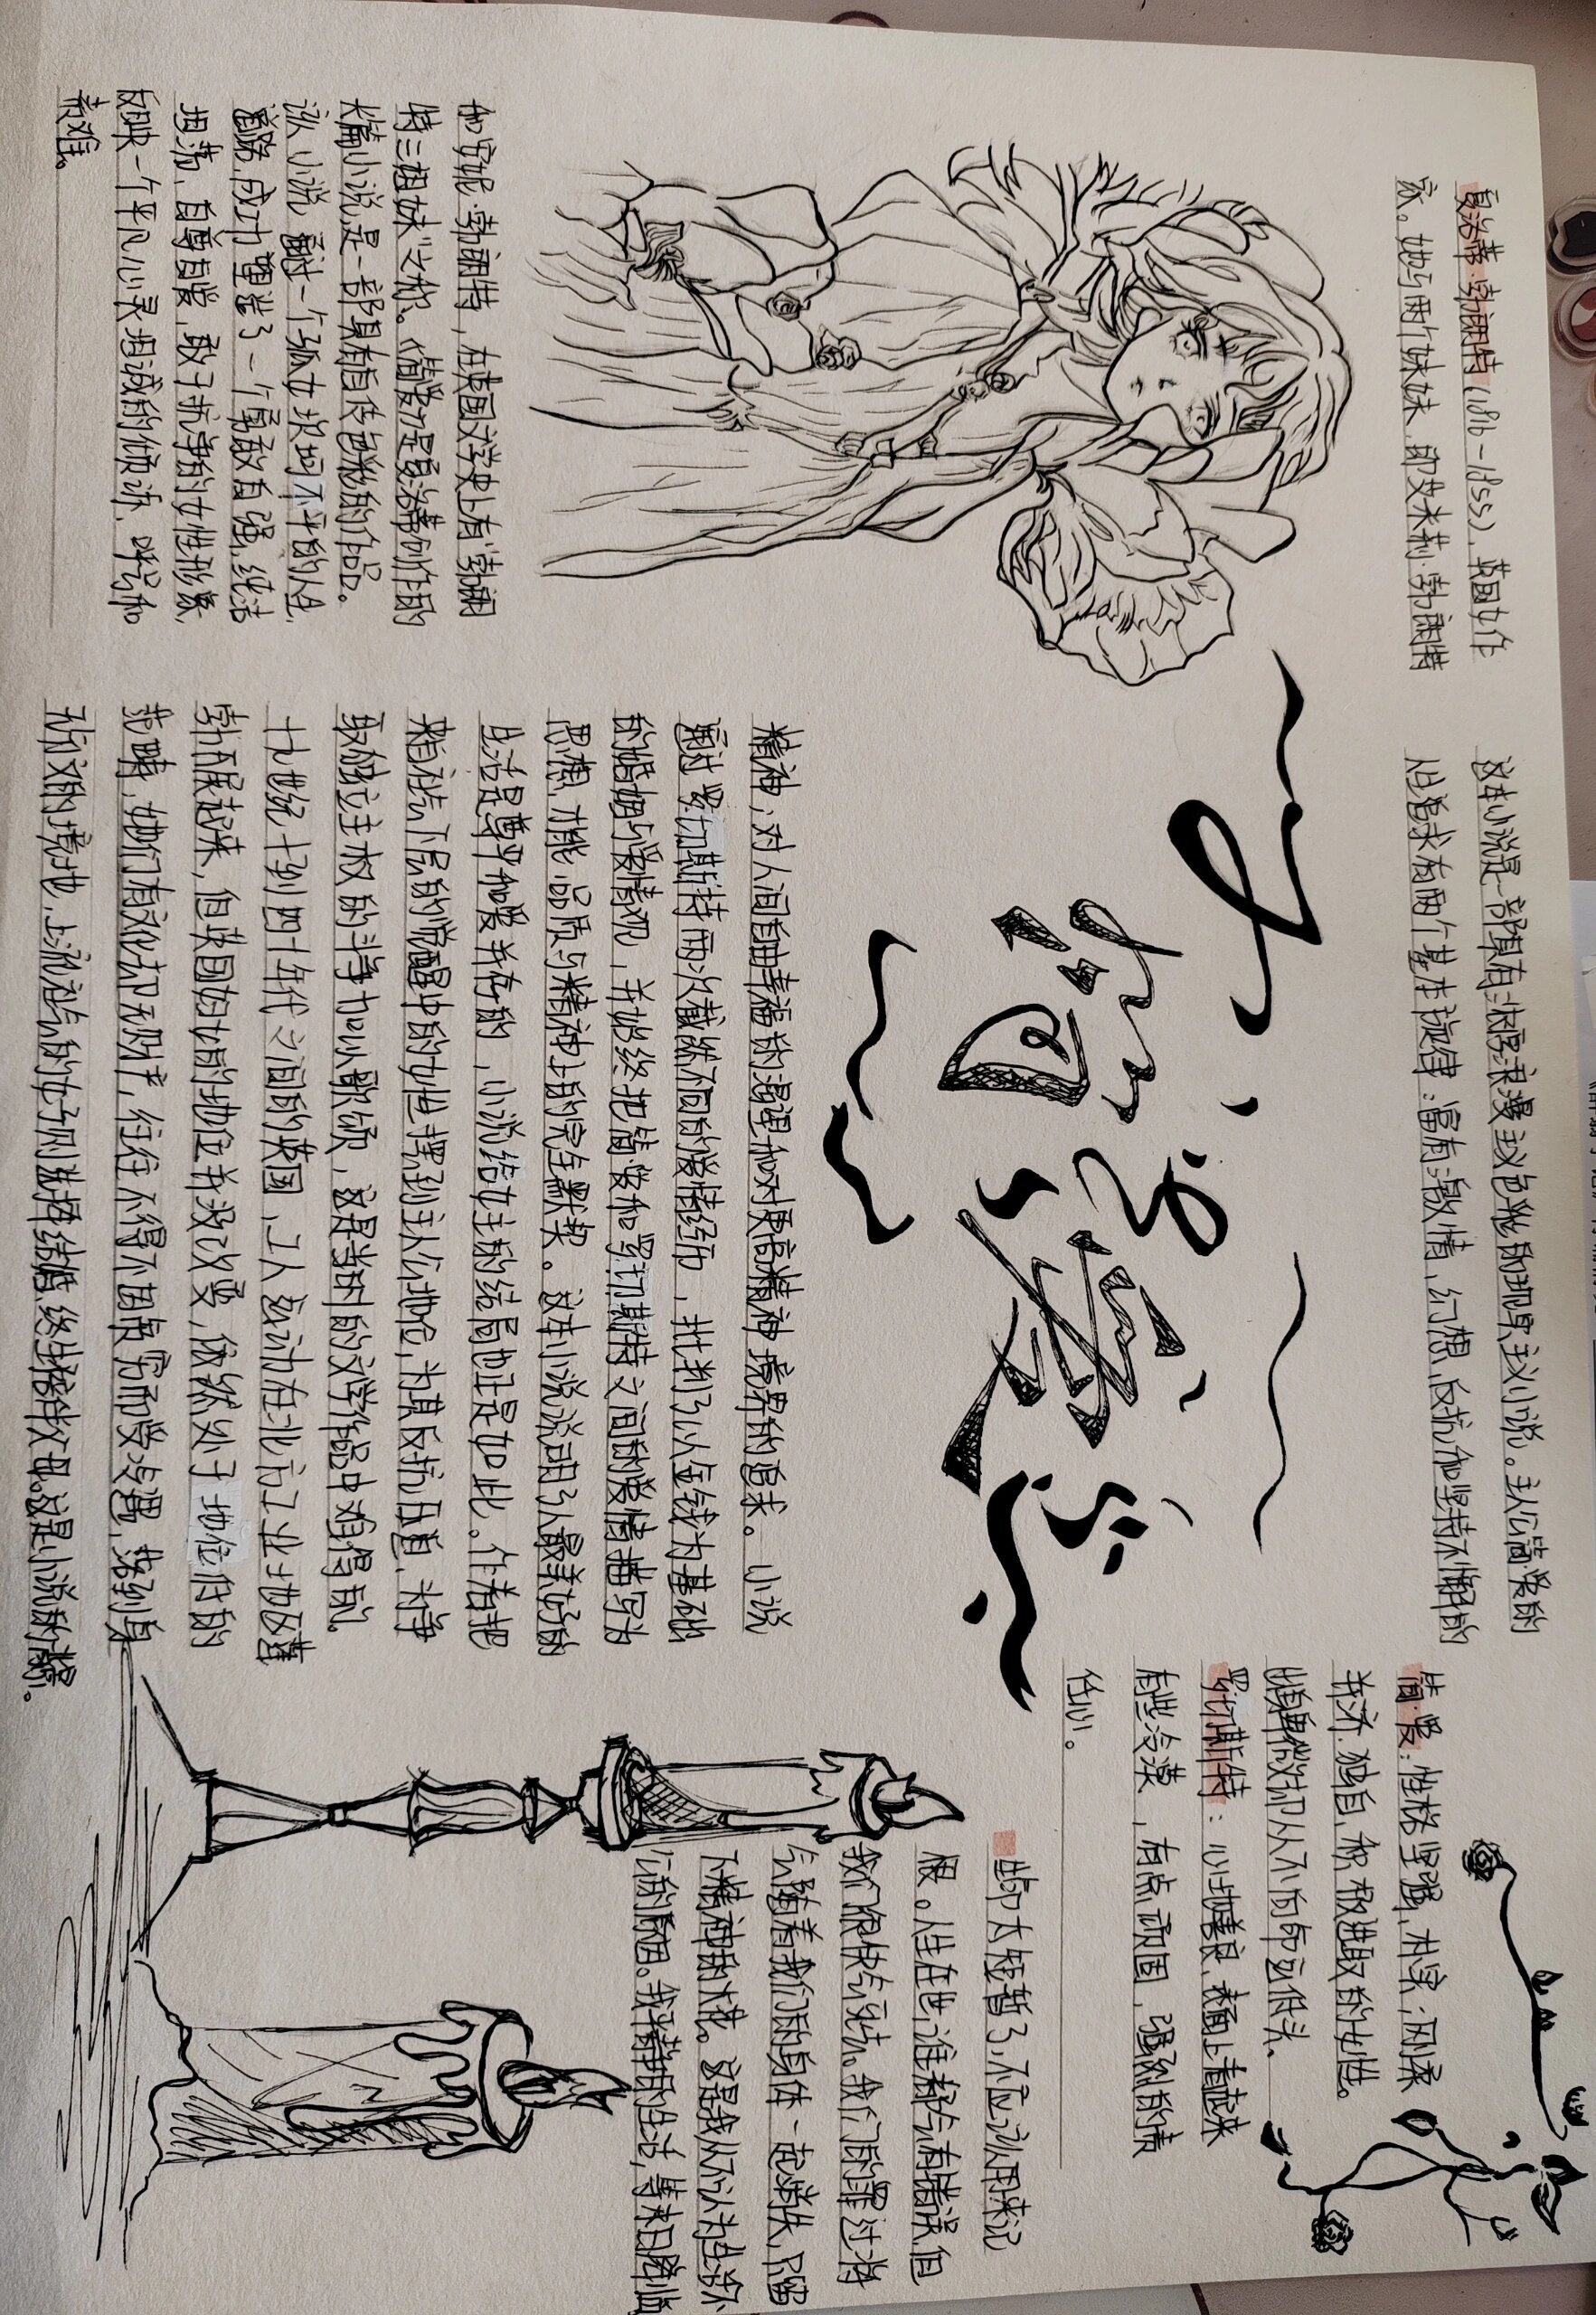 夏洛蒂·勃朗特(1816-1855),英国女作
家。她与两个妹妹,即艾米莉·勃朗特
和安妮·勃朗特,在英国文学史上有“勃朗
特三姐妹”之称。《简爱》是夏洛蒂创作的
长篇小说是一部具有自传色彩的作品。
该人小说通过一个孤女坎坷不平的人生
道路,成功塑造了一个勇敢自强,纯洁
坦荡、自尊自爱,敢于抗争的女性形象
反映一个平凡心灵坦诚的倾诉、呼号和
责难。
简爱
这本小说是一部具有浓厚浪漫主义色彩的现实主义小说。主人公简·爱的
人生追求有两个基本旋律:富有激情,幻想、反抗和坚持不懈的
精神;对人间自由幸福的渴望和对更高精神境界的追求。小说
通过罗切斯特两次截然不同的爱情经历,批判了以金钱为基础
的婚姻与爱情观,并始终把简·爱和罗切斯特之间的爱情描写为
思想、才能、品质与精神上的完全默契。这本小说说明了人最美好的
生活是尊严和爱并存的,小说给女主的结局也正是如此。作者把
来自社会下层的觉醒中的女性摆到主人公地位,为其反抗压迫、为争
取独立主权的斗争加以歌颂,这是当时的文学作品中难得的。
十九世纪十到四十年代之间的英国,工人运动在北方工业地区蓬
勃开展起来,但英国妇女的地位并没改变,依然处于地位低的
范畴,她们有文化却无财产,往往不得不因贫穷而受冷遇,落到身
无分文的境地,上流社会的女子则选择结婚,终生接轨父母。这是小说的背景。
简·爱:性格坚强,朴实,刚柔
并济,独自,积极进取的女性。
出身卑微却从不向命运低头、
罗切斯特:心地善良,表面上看起来
有些冷漠,有点顽固,强烈的责
任心。
生命太短暂了,不应该用来记
恨。人生在世,谁都会有错误,但
我们很快会死去。我们的罪过将
会随着我们的身体一起消失,只留
下精神的火花。这是我从不认为生活不
公平的原因。我平静的生活,等末日降临